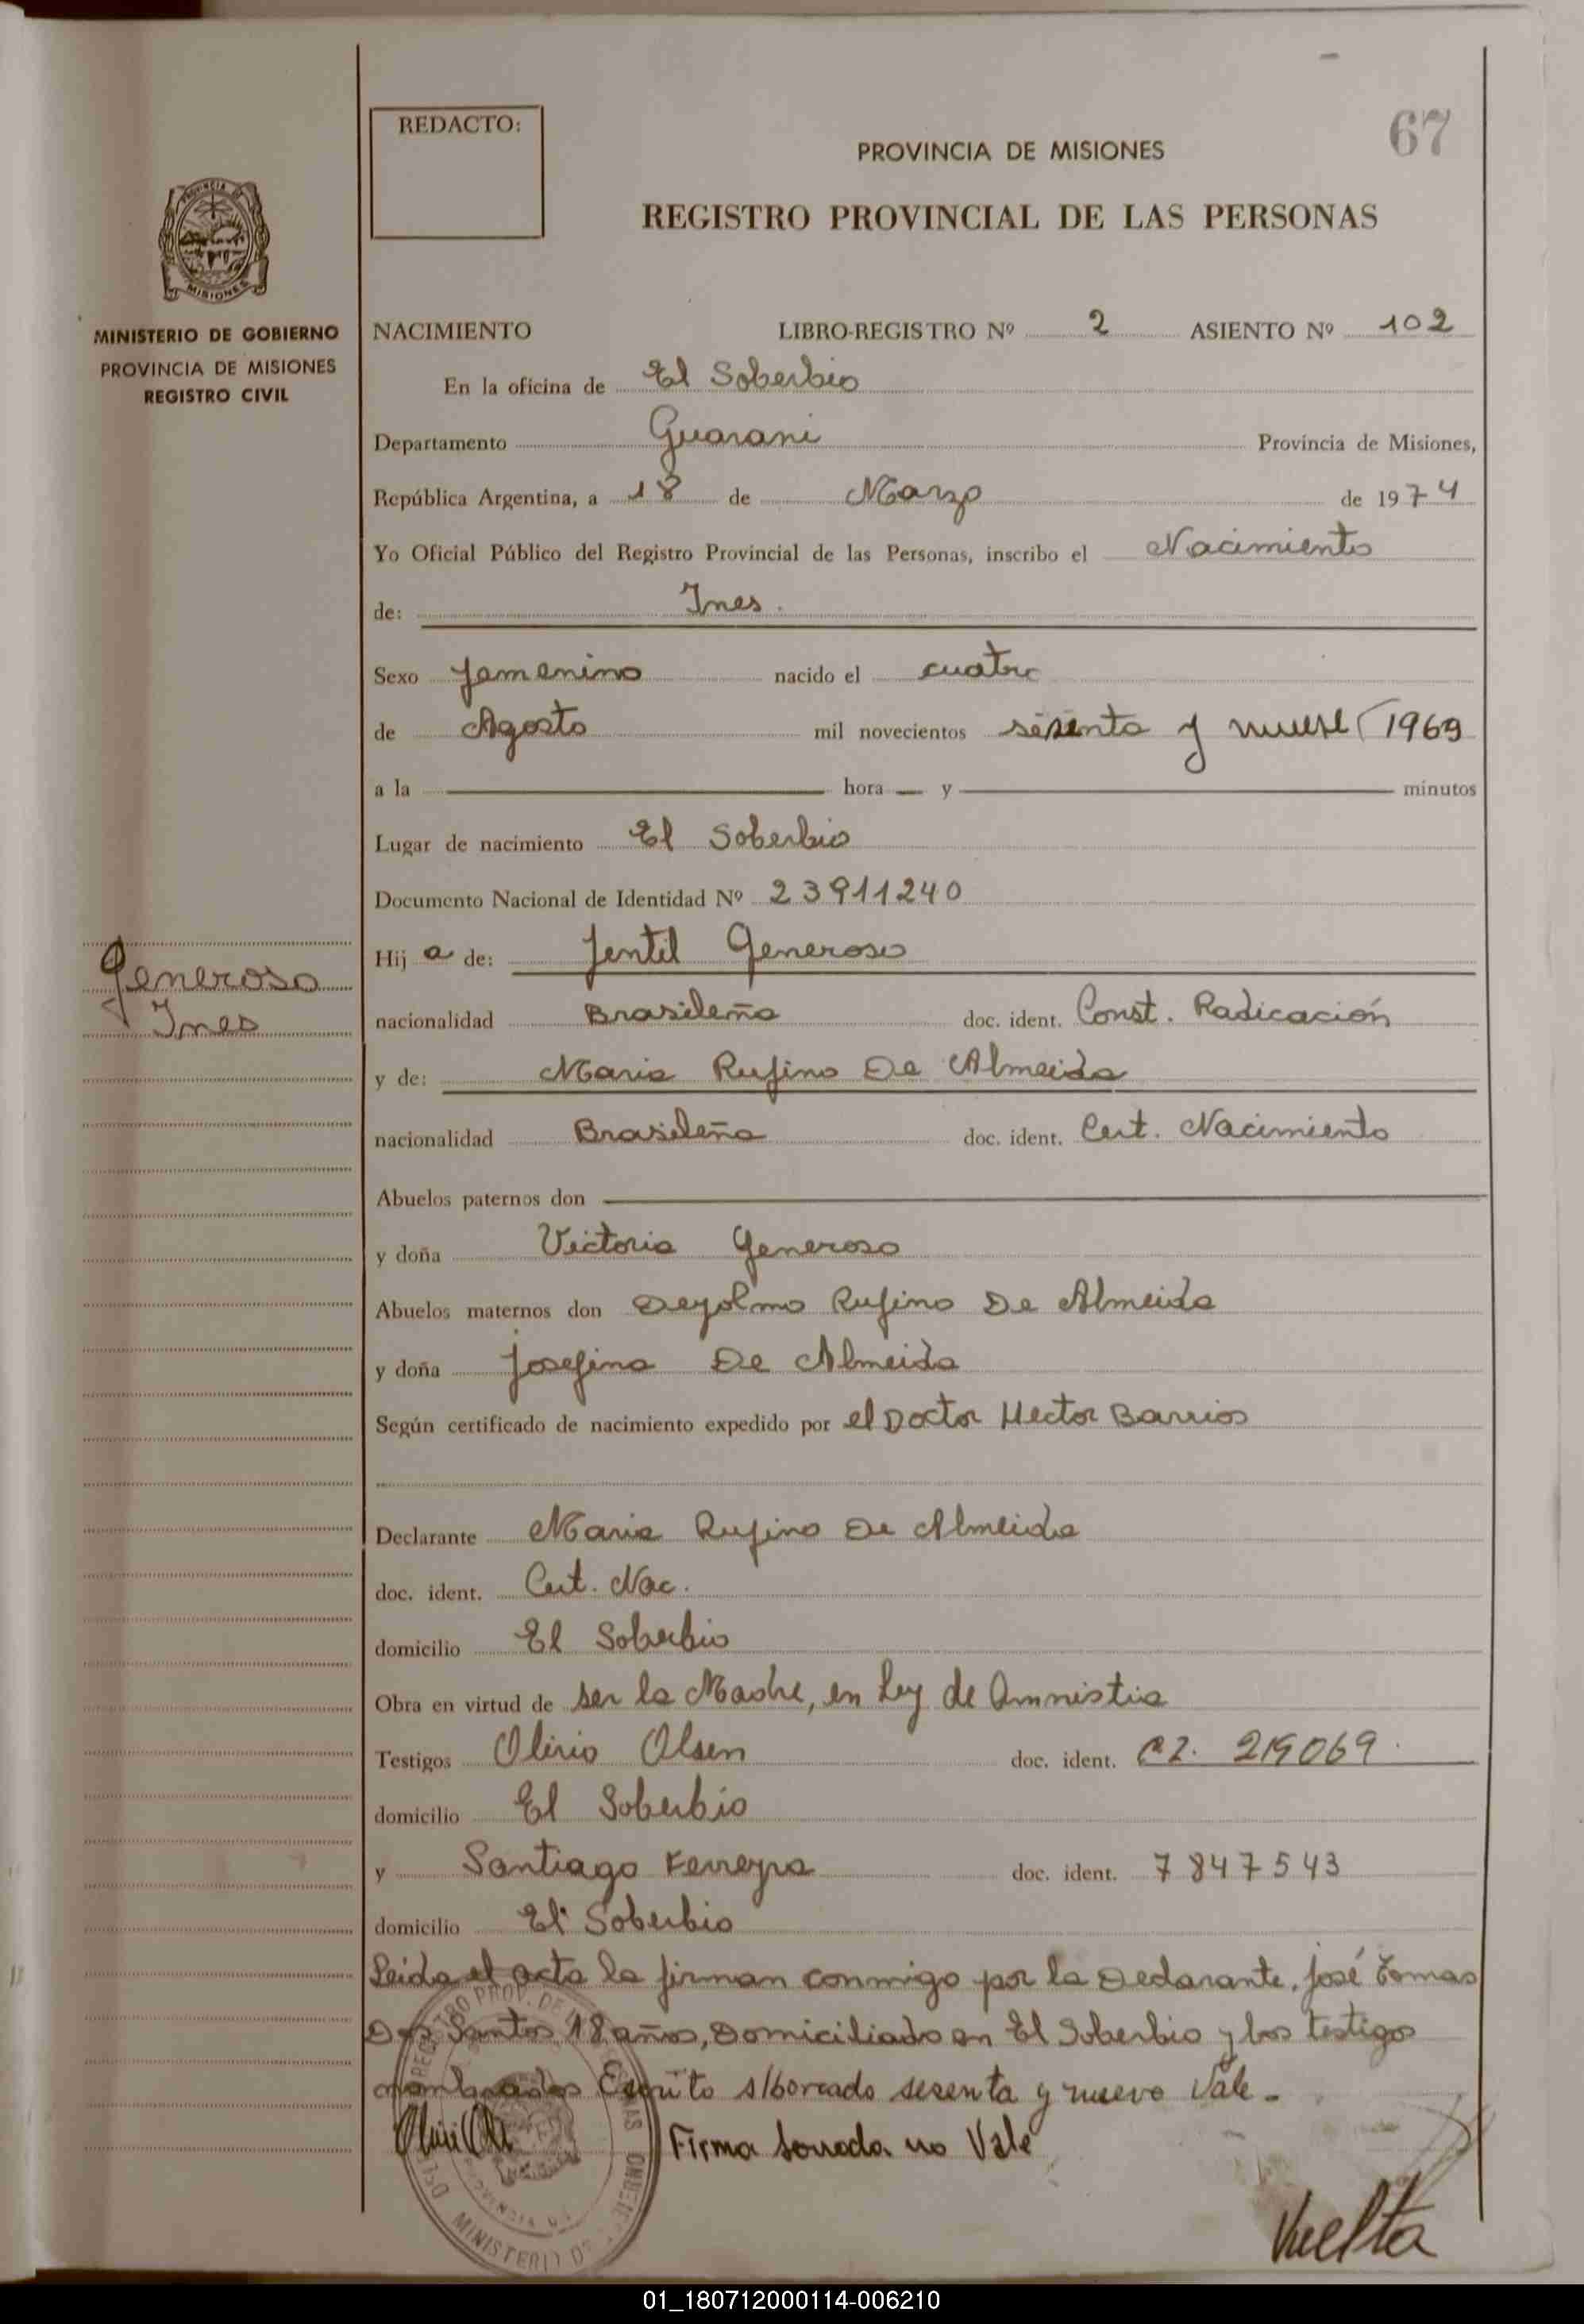 REDACTO:
67
PROVINCIA DE MISIONES
REGISTRO PROVINCIAL DE LAS PERSONAS
MISIONES
MINISTERIO DE GOBIERNO
PROVINCIA DE MISIONES
REGISTRO CIVIL
NACIMIENTO LIBRO-REGISTRO Nº 2 ASIENTO Nº 102
En la oficina de El Soberbio
Departamento Guarani Provincia de Misiones,
República Argentina, a 18 de Marzo de 1974
Yo Oficial Público del Registro Provincial de las Personas, inscribo el Nacimiento
de: Ines.
Sexo femenino nacido el cuatro
de Agosto mil novecientos sesenta y nueve (1969
a la hora y minutos
Lugar de nacimiento El Soberbio
Documento Nacional de Identidad Nº 23911240
Generoso
Ines
Hij a de: Jentil Generoso
nacionalidad Brasileña doc. ident. Const. Radicación
y de: Maria Rufino De Almeida
nacionalidad Brasileña doc. ident. Cert. Nacimiento
Abuelos paternos don
y doña Victoria Generoso
Abuelos maternos don Rufino De Almeida
y doña Josefina De Almeida
Según certificado de nacimiento expedido por el Doctor Hector Barrios
Declarante Maria Rufino De Almeida
doc. ident. Cert. Nac.
domicilio El Soberbio
Obra en virtud de ser la Madre, en Ley de Amnistia
Testigos Olirio Olsen doc. ident. 219069
domicilio El Soberbio
y Santiago Ferreyra doc. ident. 7847543
domicilio El Soberbio
Leida el acta la firman conmigo por la Declarante, José Tomas
Dos Santos 18 años, Domiciliado en El Soberbio y los testigos
nombrados Escrito s/borrado sesenta y nueve Vale.
Firma borrada no Vale
Vuelta
01_180712000114-006210